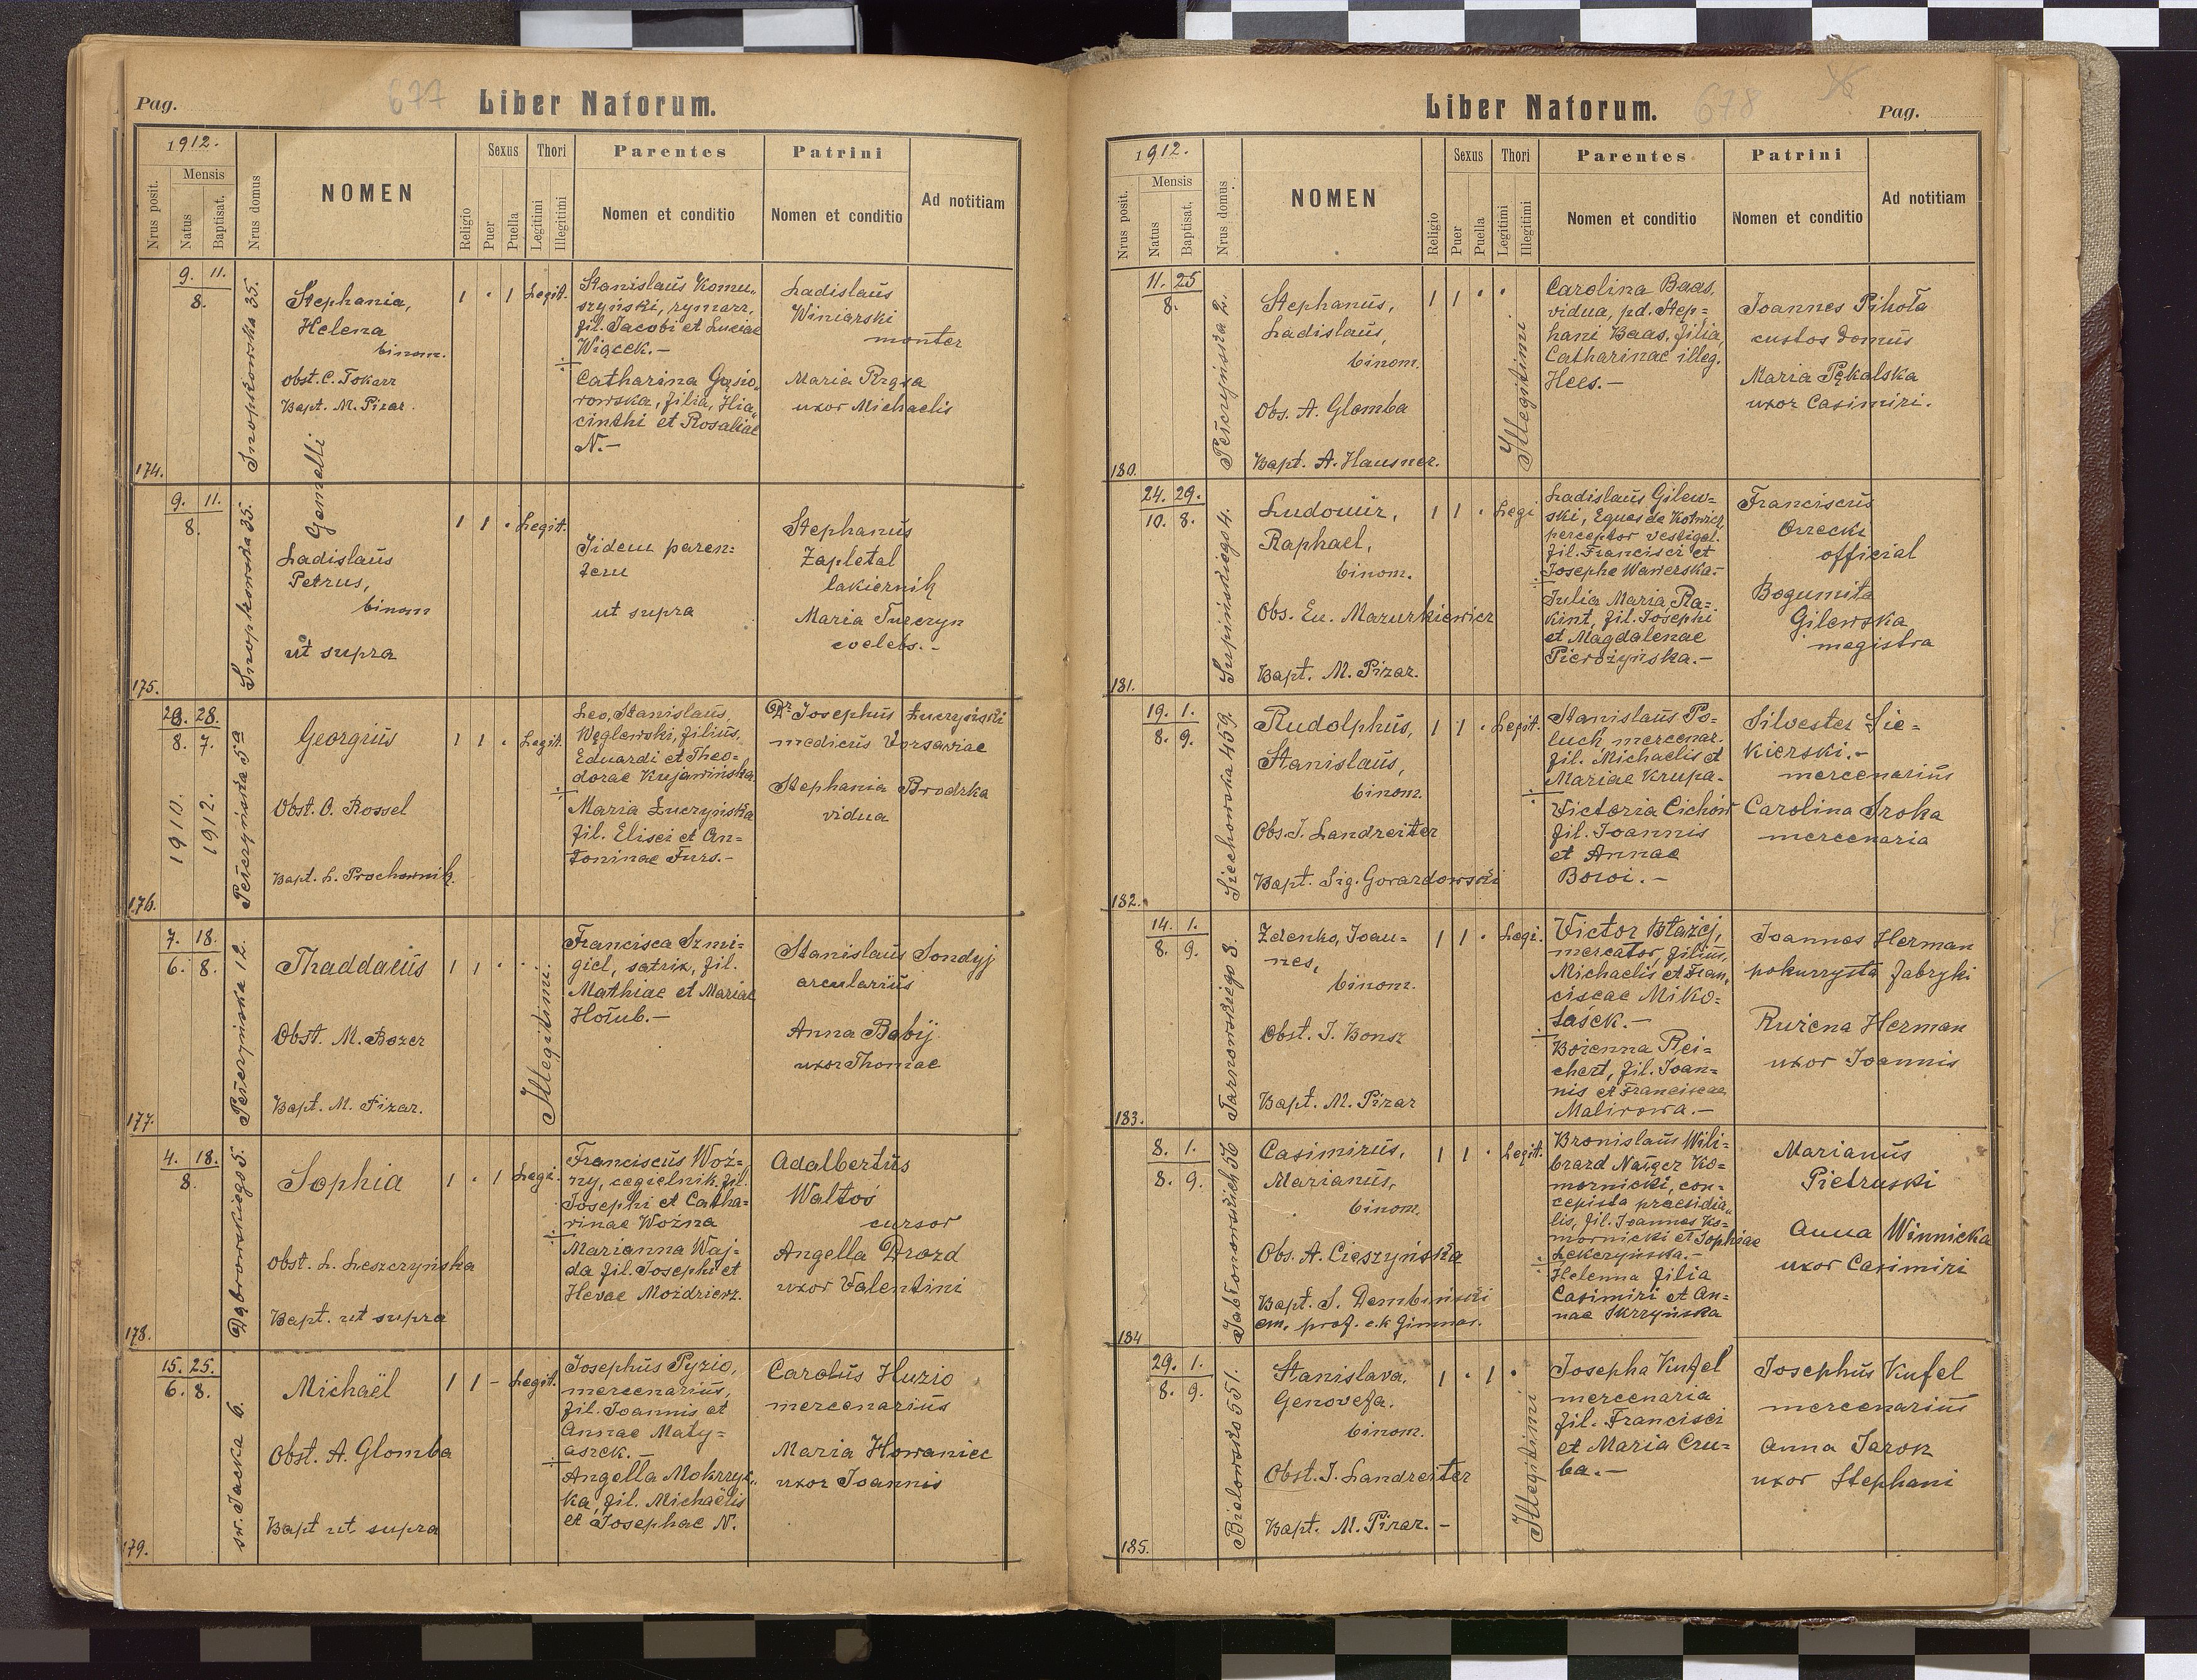 Pag.
677
Liber Natorum.
1912.
Nrus posit.
Mensis
Natus
Baptisat.
Nrus domus
NOMEN
Religio
Sexus
Puer
Puella
Thori
Legitimi
Illegitimi
Parentes
Nomen et conditio
Patrini
Nomen et conditio
Ad notitiam
174.
9. 11.
8.
Snopkowska 35.
Stephania,
Helena
binom.
Obst. C. Tokarz
Bapt. M. Pizar.
1 · 1 Legit.
Stanislaus Komu„
szyński, rymarz,
fil. Jacobi et Luciae
Wiącek.—
Catharina Gąsio„
rowska, filia, Hia„
cinthi et Rosaliae
N.—
Ladislaus
Winiarski
monter
Maria Rząsa
uxor Michaelis
Gemelli
175.
9. 11.
8.
Snopkowska 35.
Ladislaus
Petrus,
binom
ut supra
1 1 · Legit.
Iidem paren=
tem
ut supra
Stephanus
Zapletal
lakiernik
Maria Tueczyn
coelebs.-
176.
28. 28.
8. 7.
1910.
1912.
Pełczyńska 5a
Georgius
Obst. O. Rossel
Bapt. L. Prochownik.
1 1 · Legit.
Leo, Stanislaus,
Węglewski, filius,
Eduardi et Theo=
dorae Kujawińska
Maria Łuczyńska
fil. Elisei et An=
toninae Furs.-
Dr. Josephus Łuczyński
medicus Varsaviae
Stephania Brodzka
vidua
177.
7. 18.
6. 8.
Pełczyńska 12.
Thaddaeus
Obst. M. Bozer
Bapt. M. Pizar.
1 1 · ·
Illegitimi.
Francisca Szmi=
giel, satrix, fil.
Mathiae et Mariae
Hołub.—
Stanislaus Sondyj
arcularius
Anna Babij
uxor Thomae
178.
4. 18.
8.
Dąbrowskiego 5.
Sophia
Obst. L. Leszczyńska
Bapt. ut supra
1 · 1 Legi.
Franciscus Woź=
ny, cegielnik, fil.
Josephi et Catha=
rinae Woźna
Marianna Waj=
da fil. Josephi et
Hevae Moździerz.
Adalbertus
Waltoś
cursor
Angella Drozd
uxor Valentini
179.
15. 25.
6. 8.
sw. Jacka 6.
Michaël
Obst. A. Glomba
Bapt ut supra
1 1 - Legit.
Josephus Pyzio,
mercenarius,
fil. Joannis et
Annae Maty=
aszek.—
Angella Mokrzyc„
ka, fil. Michaëlis
et Josephae N.
Carolus Huzio
mercenarius
Maria Howaniec
uxor Joannis
Liber Natorum.
678
Pag.
1912.
Nrus posit.
Mensis
Natus
Baptisat.
Nrus domus
NOMEN
Religio
Sexus
Puer
Puella
Thori
Legitimi
Illegitimi
Parentes
Nomen et conditio
Patrini
Nomen et conditio
Ad notitiam
180.
11. 25
8.
Pełczyńska 2.
Stephanus,
Ladislaus,
binom.
Obs. A. Glomba
Bapt. A. Hausner.
1 1 · ·
Illegitimi.
Carolina Baas,
vidua, pd. Step=
hani Baas, filia,
Catharinae illeg.
Hees.—
Joannes Pikoła
custos domus
Maria Pękalska
uxor Casimiri.
181.
24. 29.
10. 8.
Supińskiego 4.
Ludomir,
Raphael,
binom.
Obs. Eu. Mazurkiewicz
Bapt. M. Pizar.
1 1 · Legi
Ladislaus Gilew=
ski, Eques de Kotwicz,
perceptor vestigal.
fil. Francisci et
Josepha Wawerska.-
Julia Maria Ra=
kint, fil. Josephi
et Magdalenae
Pierożyńska.—
Franciscus
Orzecki
official
Bogumiła
Gilewska
magistra
182.
19. 1.
8. 9.
Ziechowska 459.
Rudolphus,
Stanislaus,
binom.
Obs. J. Landreiter
Bapt. Sig. Gorazdowski
1 1 · Legit.
Stanislaus Po=
luch, mercenar.
fil. Michaelis et
Mariae Krupa.
Victoria Cichoń
fil. Joannis
et Annae
Bowi.—
Silvester Sie=
kierski.-
mercenarius
Carolina Sroka
mercenaria
183.
14. 1.
8. 9.
Tarnowskiego 3.
Zdenko, Joan=
nes,
binom.
Obst. J. Bonsz
Bapt. M. Pizar
1 1 · Legi.
Victor Błażej,
mercator, filius,
Michaelis et Fran„
ciscae Miko=
łasek.—
Boienna Rei=
chert, fil. Joan=
nis et Franciscae
Malirowa.—
Joannes Herman
pokurzysta fabryki
Ruzena Herman
uxor Joannis
184
8. 1.
8. 9.
Jabłonowskich 56
Casimirus,
Marianus,
binom.
Obs. A. Cieszyńska
Bapt. S. Dembiński
em. prof. c.k gimnas.
1 1 · Legit.
Bronislaus Wili=
brord Naiger Ko=
mornicki, con=
cepista praesidia„
lis, fil. Joannes Ko=
mornicki et Sophiae
Łekczyńska.—
Helenna filia
Casimiri et An=
nae Skrzyńska
Marianus
Pietruski
Anna Winnicka
uxor Casimiri
185.
29. 1.
8. 9.
Bielowsko 551.
Stanislava,
Genovefa.
binom.
Obst. J. Landreiter
Bapt. M. Pizar. -
1 · 1 ·
Illegitimi
Josepha Kufel
mercenaria
fil. Francisci
et Maria Cru=
ba.—
Josephus Kufel
mercenarius
Anna Jarok
uxor Stephani